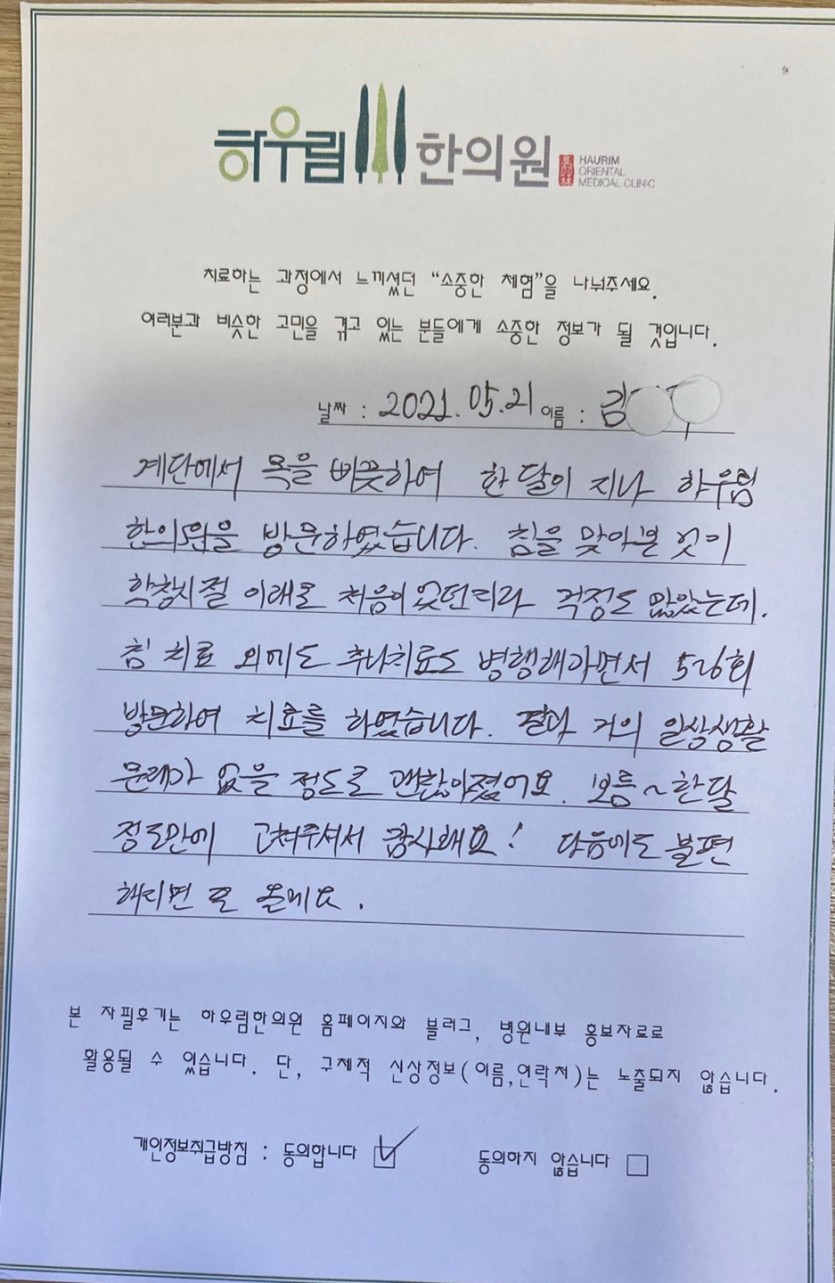 하우림 한의원
HAURIM
ORIENTAL
MEDICAL CLINIC
치료하는 과정에서 느끼셨던 “소중한 체험”을 나눠주세요.
여러분과 비슷한 고민을 겪고 있는 분들에게 소중한 정보가 될 것입니다.
날짜 : 2021.05.21 이름 : 김
계단에서 목을 삐끗하여 한 달이 지나 하우림
한의원을 방문하였습니다. 침을 맞아본 것이
학창시절 이래로 처음이었던지라 걱정도 많았는데,
침 치료 외에도 추나치료도 병행해가면서 5~6회
방문하여 치료를 하였습니다. 결과 거의 일상생활
문제가 없을 정도로 괜찮아졌어요. 보름~한달
정도만에 고쳐주셔서 감사해요! 다음에도 불편
해지면 또 올게요.
본 자필후기는 하우림한의원 홈페이지와 블러그, 병원내부 홍보자료로
활용될 수 있습니다. 단, 구체적 신상정보(이름,연락처)는 노출되지 않습니다.
개인정보취급방침 : 동의합니다 동의하지 않습니다